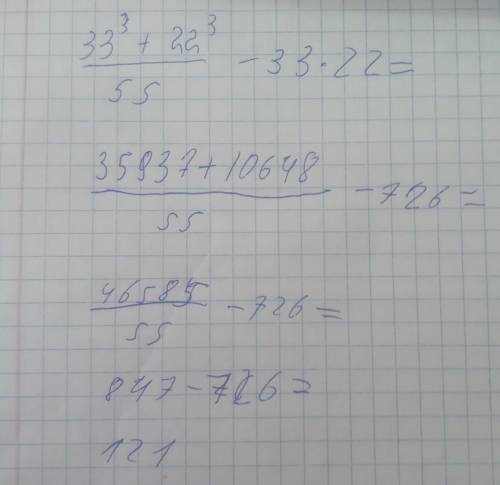 33³ + 22³ / 55 - 33 · 22 =
35937 + 10648 / 55 - 726 =
46585 / 55 - 726 =
847 - 726 =
121